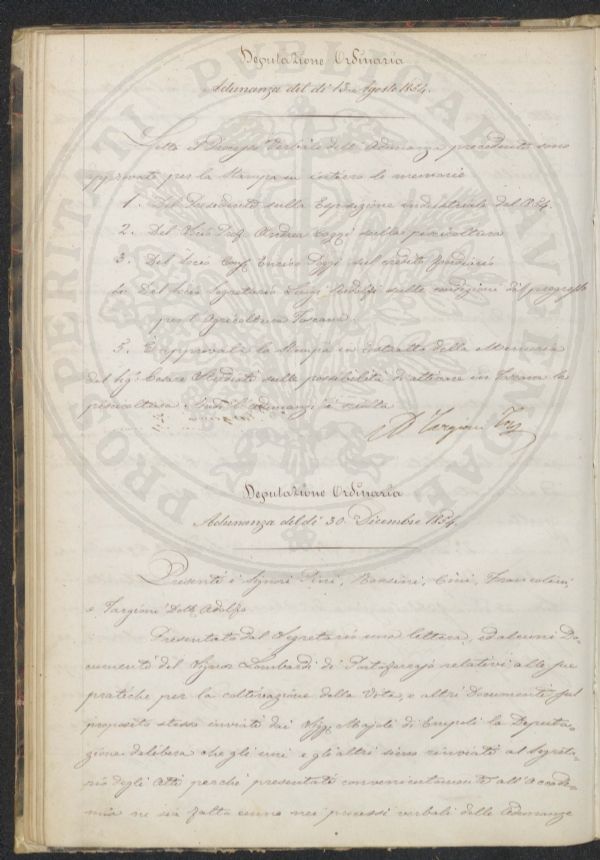 Deputazione Ordinaria
Adunanza del dì 13 Agosto 1854.
Letto il Processo Verbale dell' Adunanza precedente sono
approvate per la Stampa in intiero le memorie
1. Del Presidente sulla Esposizione industriale del 1854.
2. Del Socio Prof. Andrea Cozzi sulla piscicoltura
3. Del Socio Enrico sul credito fondiario
4. Del Socio Segretario Luigi Ridolfi sulle condizioni del progresso
per l'Agricoltura Toscana.
5. È approvata la Stampa in estratto della Memoria
del Sig. Cesare sulla possibilità di attivare in Toscana la
piscicoltura. Indi l'adunanza è sciolta
A. Targioni Tozz
Deputazione Ordinaria
Adunanza del dì 30 Dicembre 1854.
Presenti i Signori Pini, Bonsini, Cini, Francolini,
e Targioni Dott. Adolfo
Presentato dal Segretario una lettera, ed alcuni Do-
cumenti del Signor Lombardi di Portoferrajo relativi alle sue
pratiche per la coltivazione della Vite, e altri Documenti sul
proposito stesso inviati dai Sigg. Majoli di Empoli la Deputa-
zione delibera che gli uni e gli altri siano rinviati al Segreta-
rio degli Atti perchè presentati convenientemente all'Accade-
mia ne sia fatto cenno nei processi verbali delle Adunanze
PROSPERITATI PUBLICAE AUGENDAE